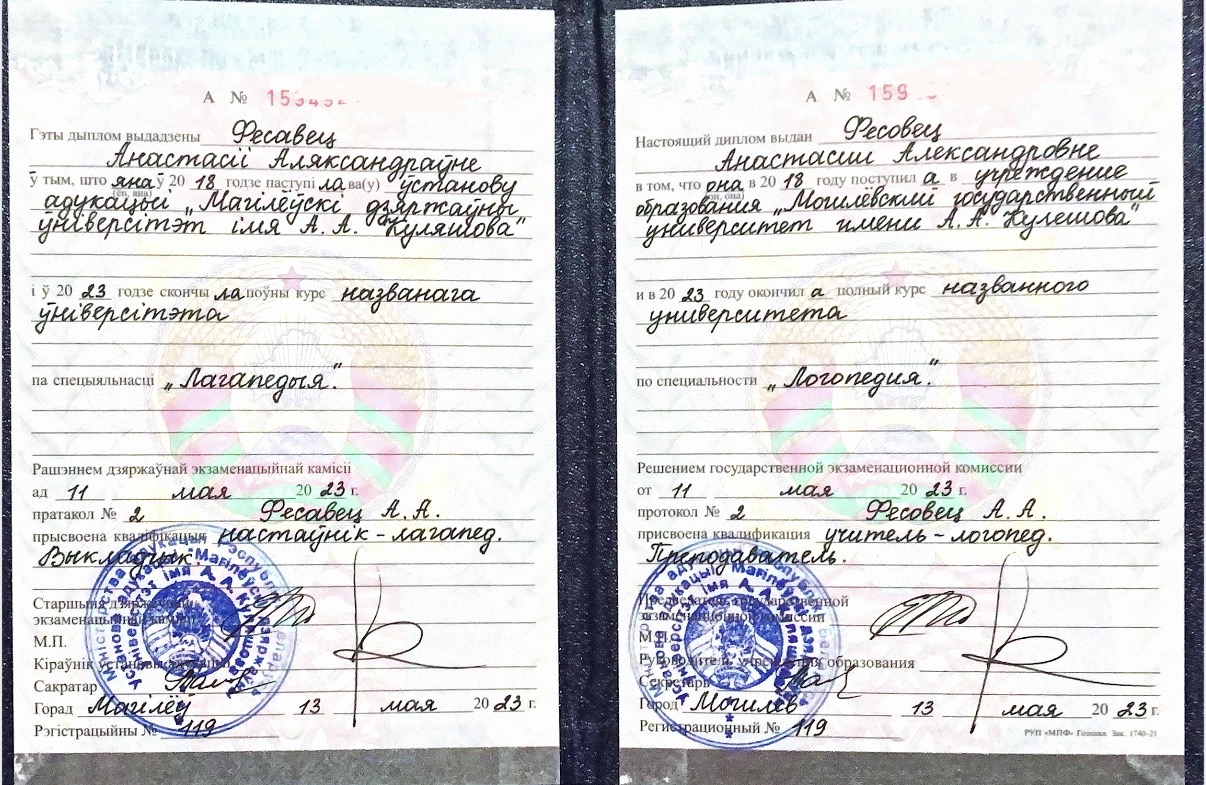 А № 159492
Гэты дыплом выдадзены Фесавец
Анастасіі Аляксандраўне
ў тым, што яна ў 20 18 годзе паступі ла ва(у) ўстанову
(ён, яна)
адукацыі „Магілёўскі дзяржаўны
ўніверсітэт імя А. А. Куляшова“
і ў 20 23 годзе скончы ла поўны курс названага
ўніверсітэта
па спецыяльнасці „Лагапедыя“.
Рашэннем дзяржаўнай экзаменацыйнай камісіі
ад 11 мая 20 23 г.
пратакол № 2 Фесавец А. А.
прысвоена кваліфікацыя настаўнік - лагапед.
Выкладчык.
Старшыня дзяржаўнай
экзаменацыйнай камісіі
М.П.
Кіраўнік установы адукацыі
Сакратар
Горад Магілёў 13 мая 20 23 г.
Рэгістрацыйны № 119
А № 159
Настоящий диплом выдан Фесовец
Анастасии Александровне
в том, что она в 20 18 году поступил а в учреждение
(он, она)
образования „Могилёвский государственный
университет имени А. А. Кулешова“
и в 20 23 году окончил а полный курс названного
университета
по специальности „Логопедия“.
Решением государственной экзаменационной комиссии
от 11 мая 20 23 г.
протокол № 2 Фесовец А. А.
присвоена квалификация учитель - логопед.
Преподаватель.
Председатель государственной
экзаменационной комиссии
М.П.
Руководитель учреждения образования
Секретарь
Город Могилёв 13 мая 20 23 г.
Регистрационный № 119
РУП «МПФ» Гознака. Зак. 1740-21